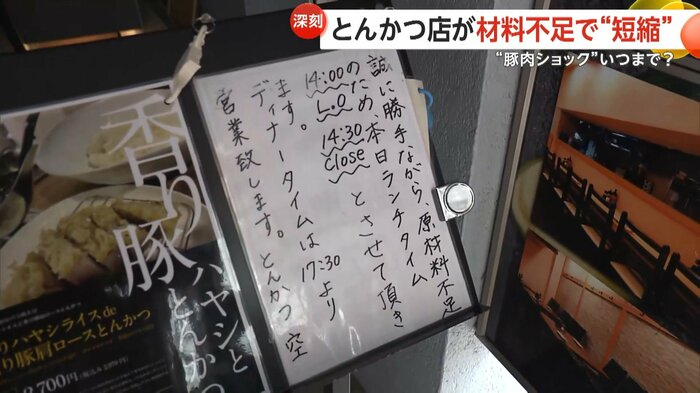 深刻
とんかつ店が材料不足で“短縮”
“豚肉ショック”いつまで？
誠に勝手ながら、原材料不足
のため、本日ランチタイム
14:00 L.O 14:30 close とさせて頂き
ます。
ディナータイムは17:30より
営業致します。とんかつ 空
香り豚
ハヤシと
とんかつ
りハヤシライスde
り豚肩ロースとんかつ
2,700円